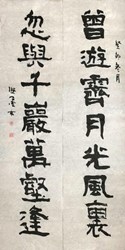 癸卯冬月
曾遊霽月光風裏
忽與千巖萬壑逢